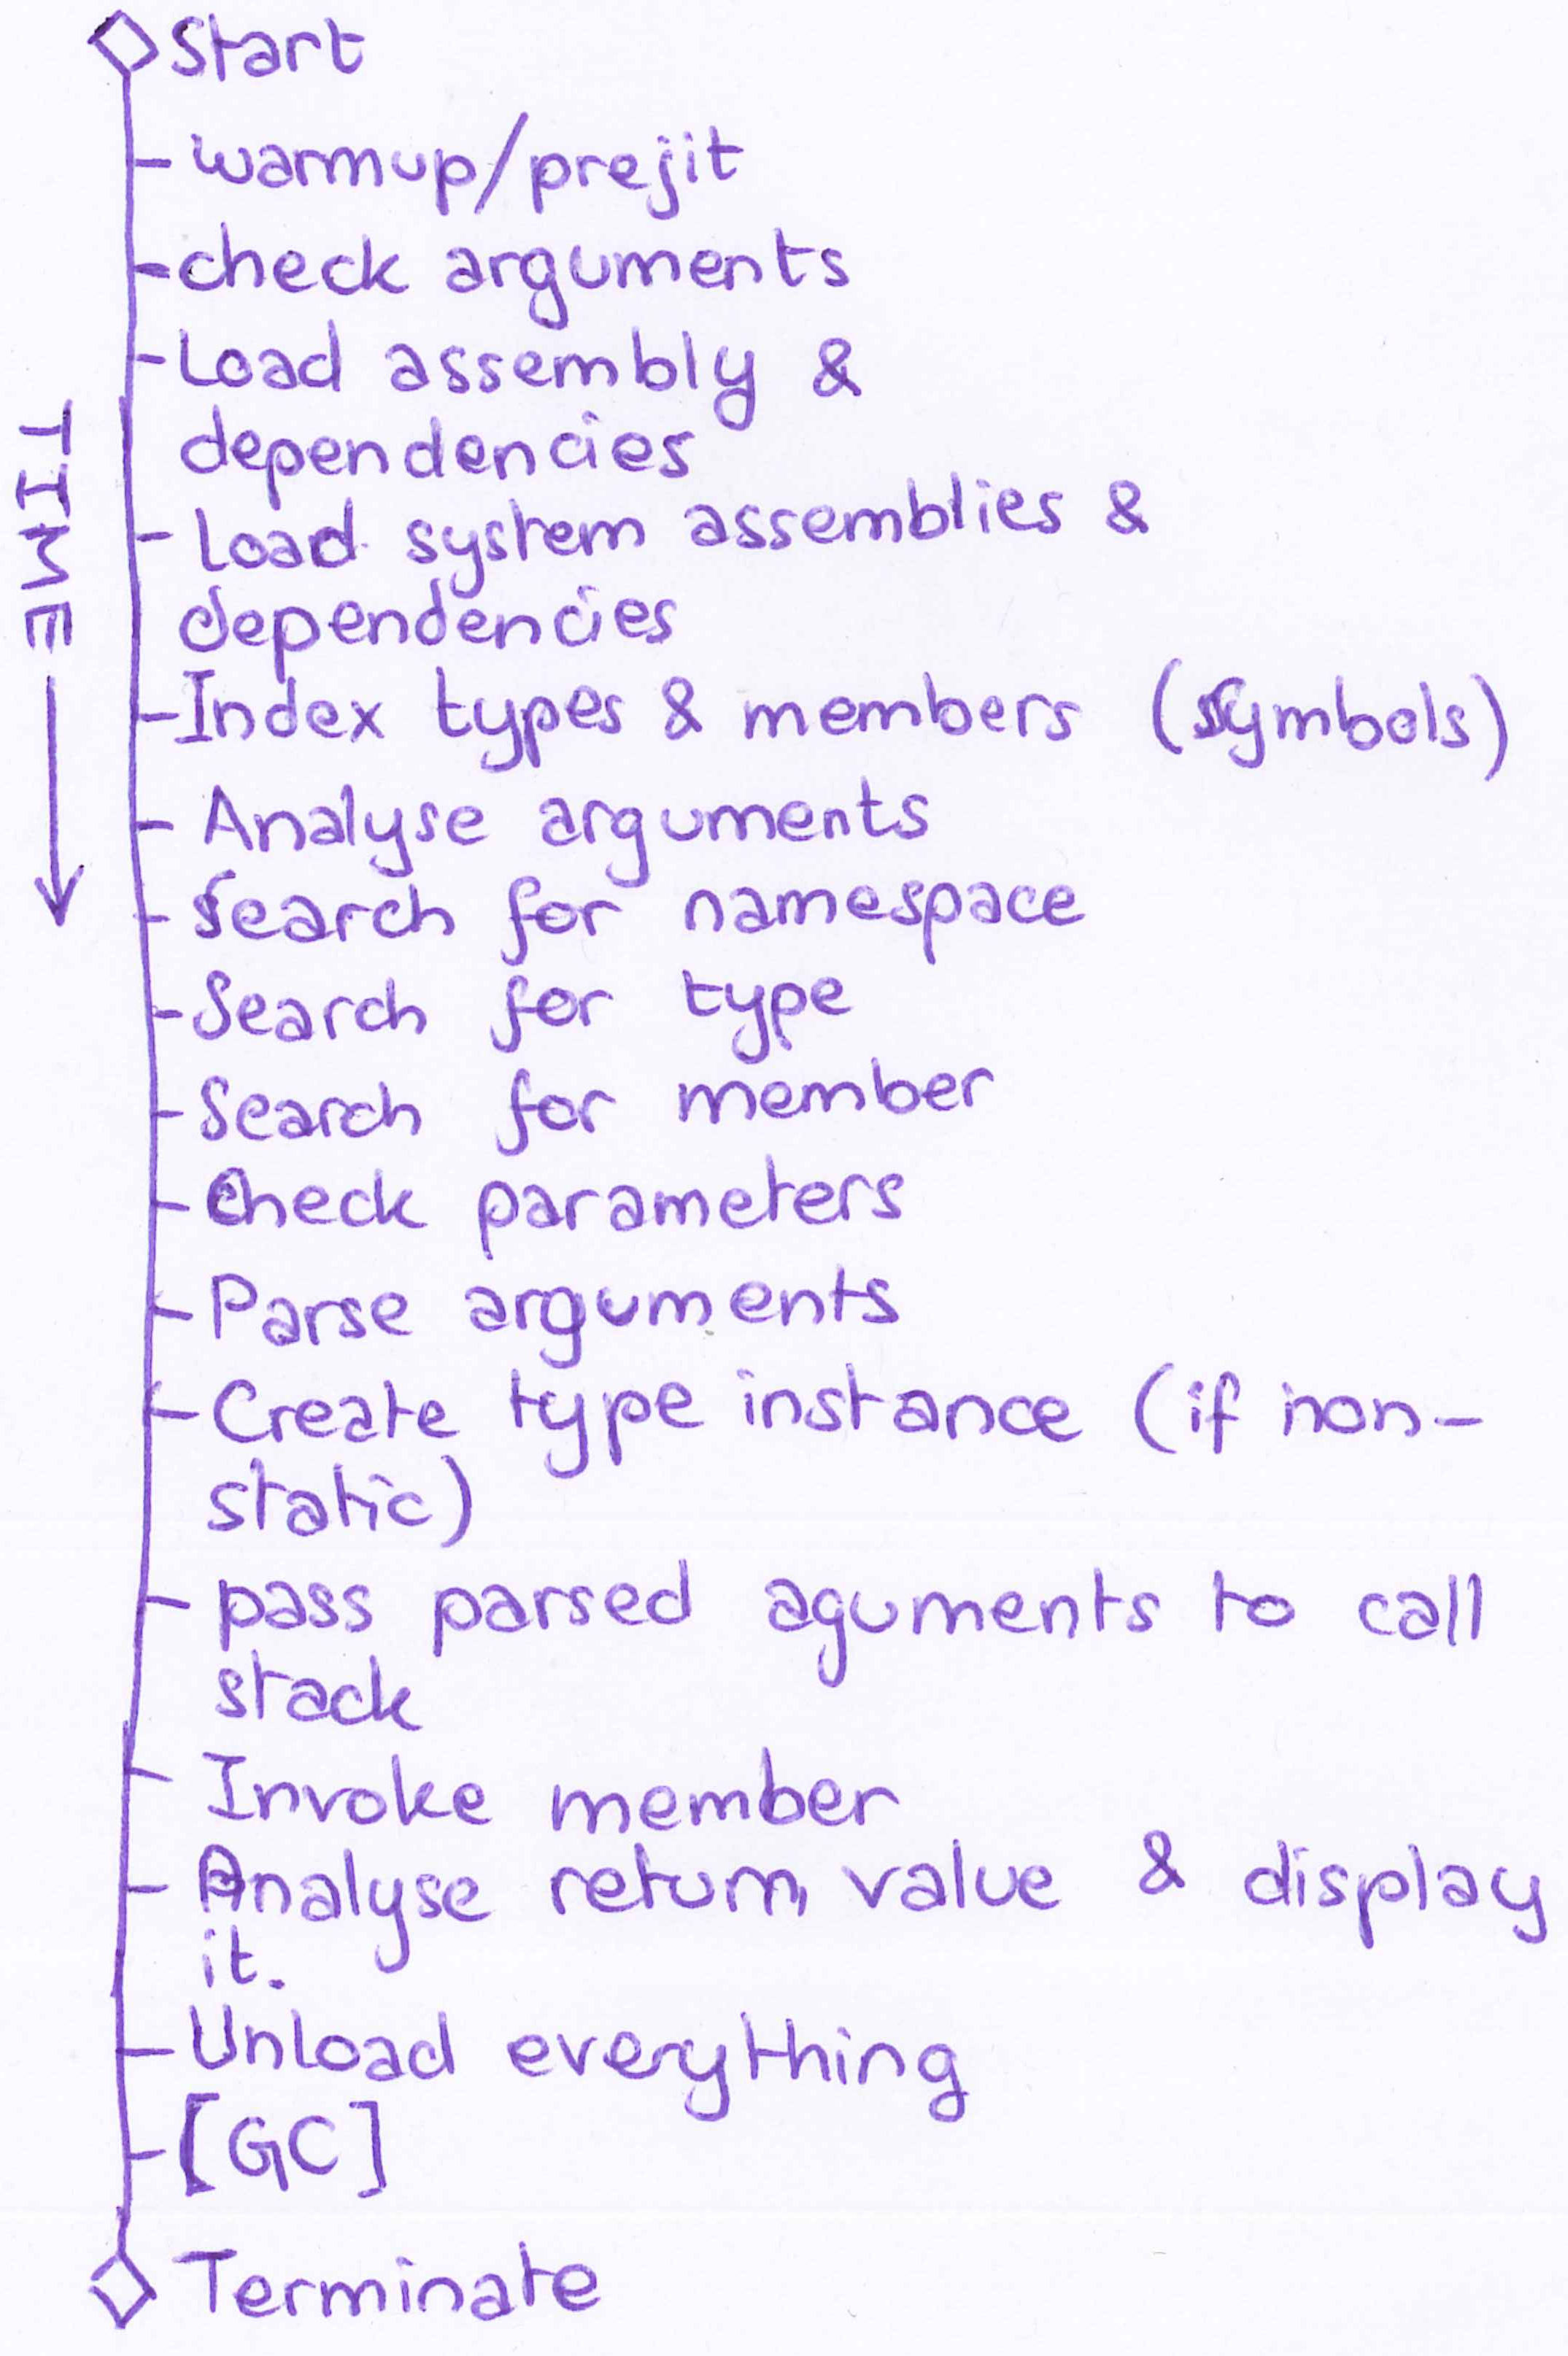 Start
warmup/prejit
check arguments
Load assembly &
dependencies
TIME
Load system assemblies &
dependencies
Index types & members (symbols)
Analyse arguments
Search for namespace
Search for type
Search for member
Check parameters
Parse arguments
Create type instance (if non-
static)
pass parsed aguments to call
stack
Invoke member
Analyse return value & display
it.
Unload everything
[GC]
Terminate